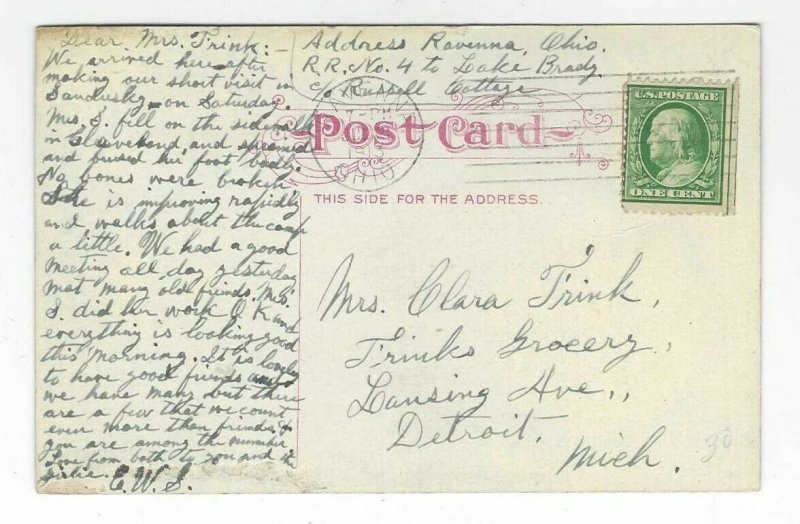 Dear Mrs. Trink:-
We arrived here after
making our short visit in
Sandusky on Saturday.
Mrs. S. fell on the sidewalk
in Cleaveland, and spreined
and brused her foot badly.
No bones were broken
She is improving rapidly
and walks about the camp
a little. We had a good
meeting all day yesterday
mat many old friends. Mrs.
S. did her work O K and
everything is looking good
this morning. It is lovely
to have good friends and
we have many but there
are a few that we count
even more than friends, &
you are among the number
Love from both to you and the
girlie. E. W. S.
Address Ravenna, Ohio.
R.R. No. 4 to Lake Brady
c/o Russell Cottage
Post Card
THIS SIDE FOR THE ADDRESS.
OHIO
U.S. POSTAGE
ONE CENT
Mrs. Clara Trink,
Trinks Grocery,
Lansing Ave.,
Detroit.
Mich.
30